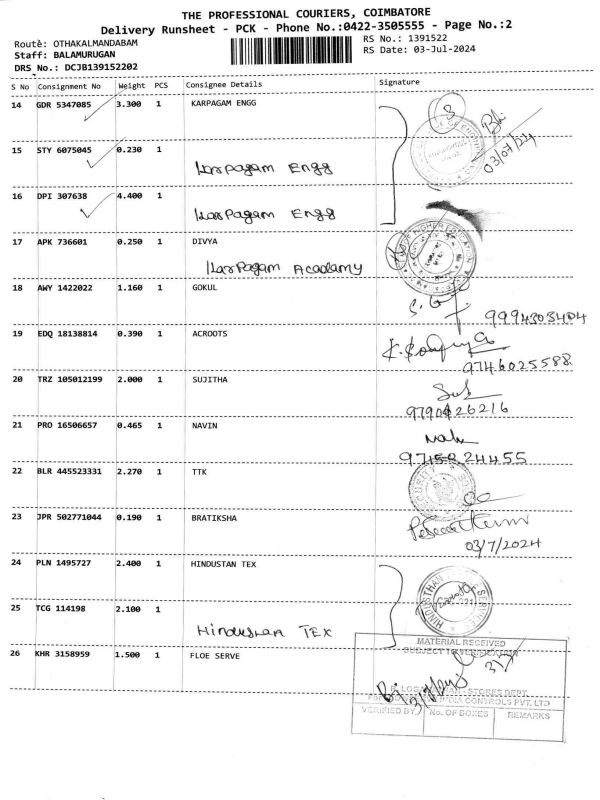 THE PROFESSIONAL COURIERS, COIMBATORE
Delivery Runsheet - PCK - Phone No.:0422-3505555 - Page No.:2
Route: OTHAKALMANDABAM
RS No.: 1391522
Staff: BALAMURUGAN
RS Date: 03-Jul-2024
DRS No.: DCJB139152202
S No Consignment No Weight PCS Consignee Details Signature
14 GDR 5347085 3.300 1 KARPAGAM ENGG
3
03/07/24
15 STY 6075045 0.230 1
Karpagam Engg
16 DPI 307638 4.400 1
Karpagam Engg
17 APK 736601 0.250 1 DIVYA
Karpagam Academy
18 AWY 1422022 1.160 1 GOKUL
9994303404
19 EDQ 18138814 0.390 1 ACROOTS
9746025588
20 TRZ 105012199 2.000 1 SUJITHA
9790426216
21 PRO 16506657 0.465 1 NAVIN
9715824455
22 BLR 445523331 2.270 1 TTK
23 JPR 502771044 0.190 1 BRATIKSHA
03/7/2024
24 PLN 1495727 2.400 1 HINDUSTAN TEX
25 TCG 114198 2.100 1
Hindustan TEX
26 KHR 3158959 1.500 1 FLOE SERVE
MATERIAL RECEIVED
SUBJECT TO VERIFICATION
STORES DEPT.
INDIA CONTROLS PVT. LTD
VERIFIED BY No. OF BOXES REMARKS